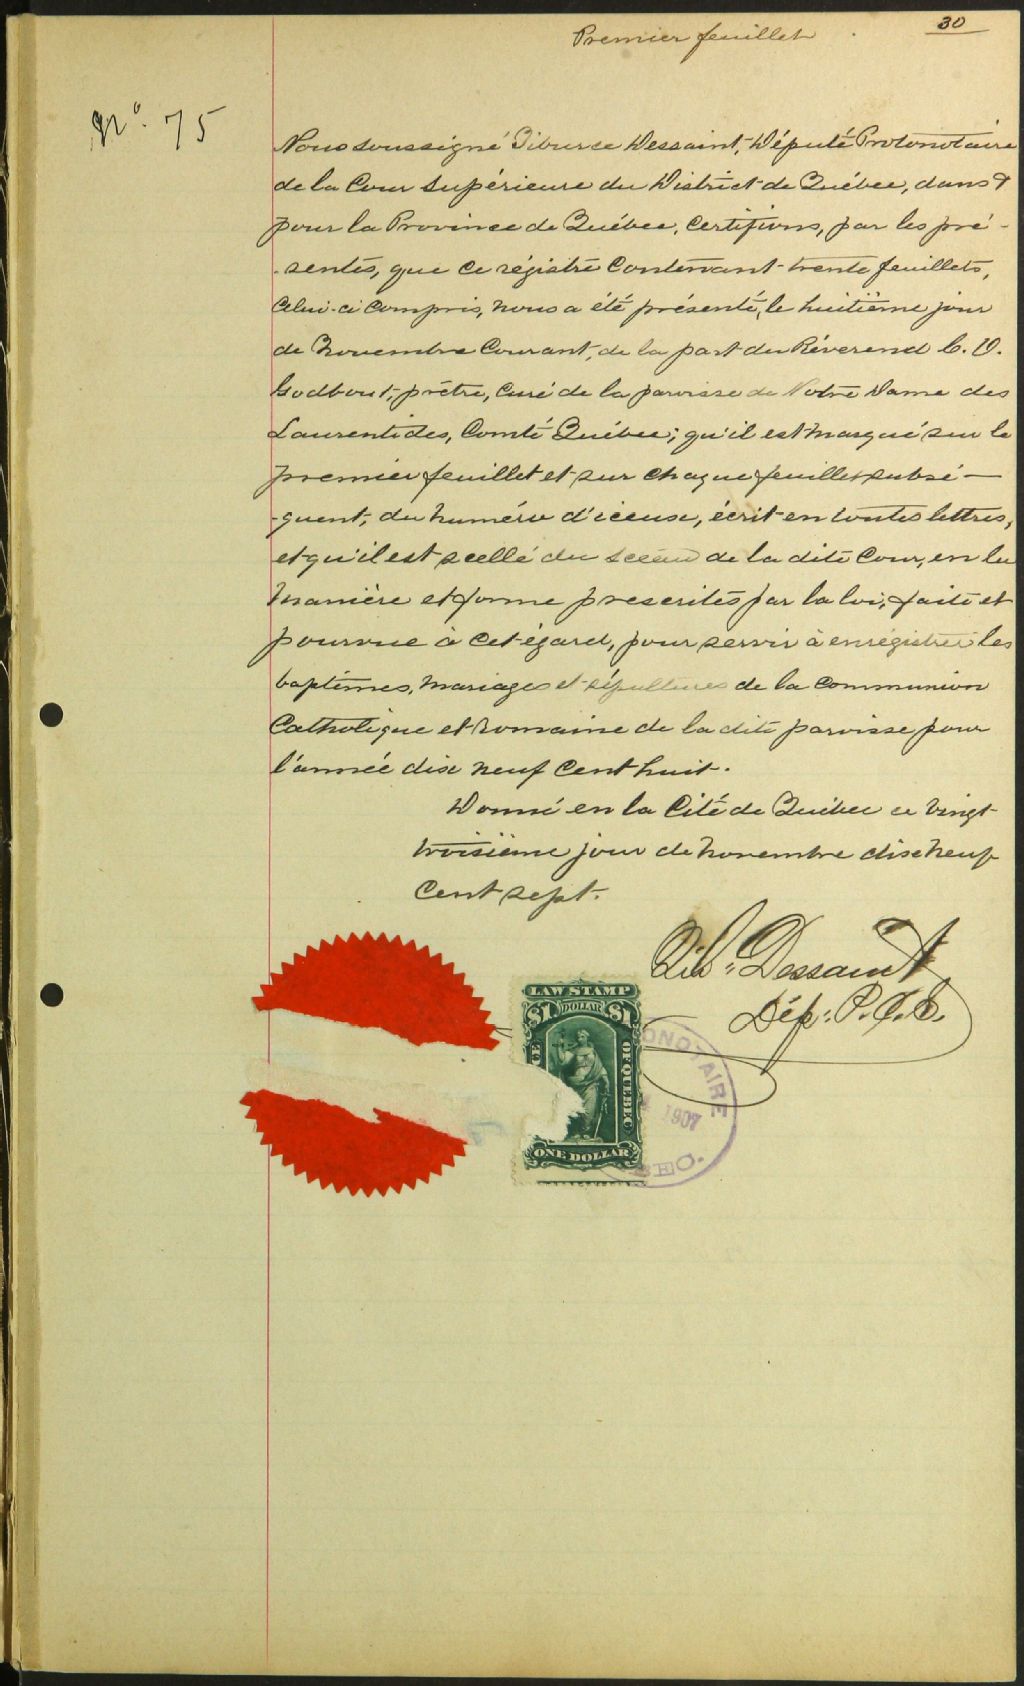 30
Premier feuillet
No. 75
Nous soussigné Tiburce Dessaint, Député Protonotaire
de la Cour Supérieure du District de Québec, dans &
pour la Province de Québec, Certifions, par les pré-
-sentes, que ce régistre Contenant trente feuillets,
Celui-ci Compris, nous a été présenté, le huitième jour
de Novembre Courant, de la part du Révérend C. V.
Godbout, prêtre, Curé de la paroisse de Notre Dame des
Laurentides, Comté Québec; qu'il est marqué sur le
premier feuillet et sur Chaque feuillet subsé-
-quent, du numéro d'iceux, écrit en toutes lettres,
et qu'il est scellé du sceau de la dite Cour, en la
manière et forme prescrites par la loi, faite et
pourvue à cet égard, pour servir à enrégistrer les
baptêmes, mariages et sépultures de la Communion
Catholique et romaine de la dite paroisse pour
l'année dix neuf Cent huit.
Donné en la Cité de Québec ce vingt
troisième jour de novembre dix neuf
Cent sept.
Tib. Dessaint
Dép. P.C.S.
LAW STAMP
$1 DOLLAR $1
CE OF QUEBEC
ONE DOLLAR
ONOTAIRE
1907
BEC.